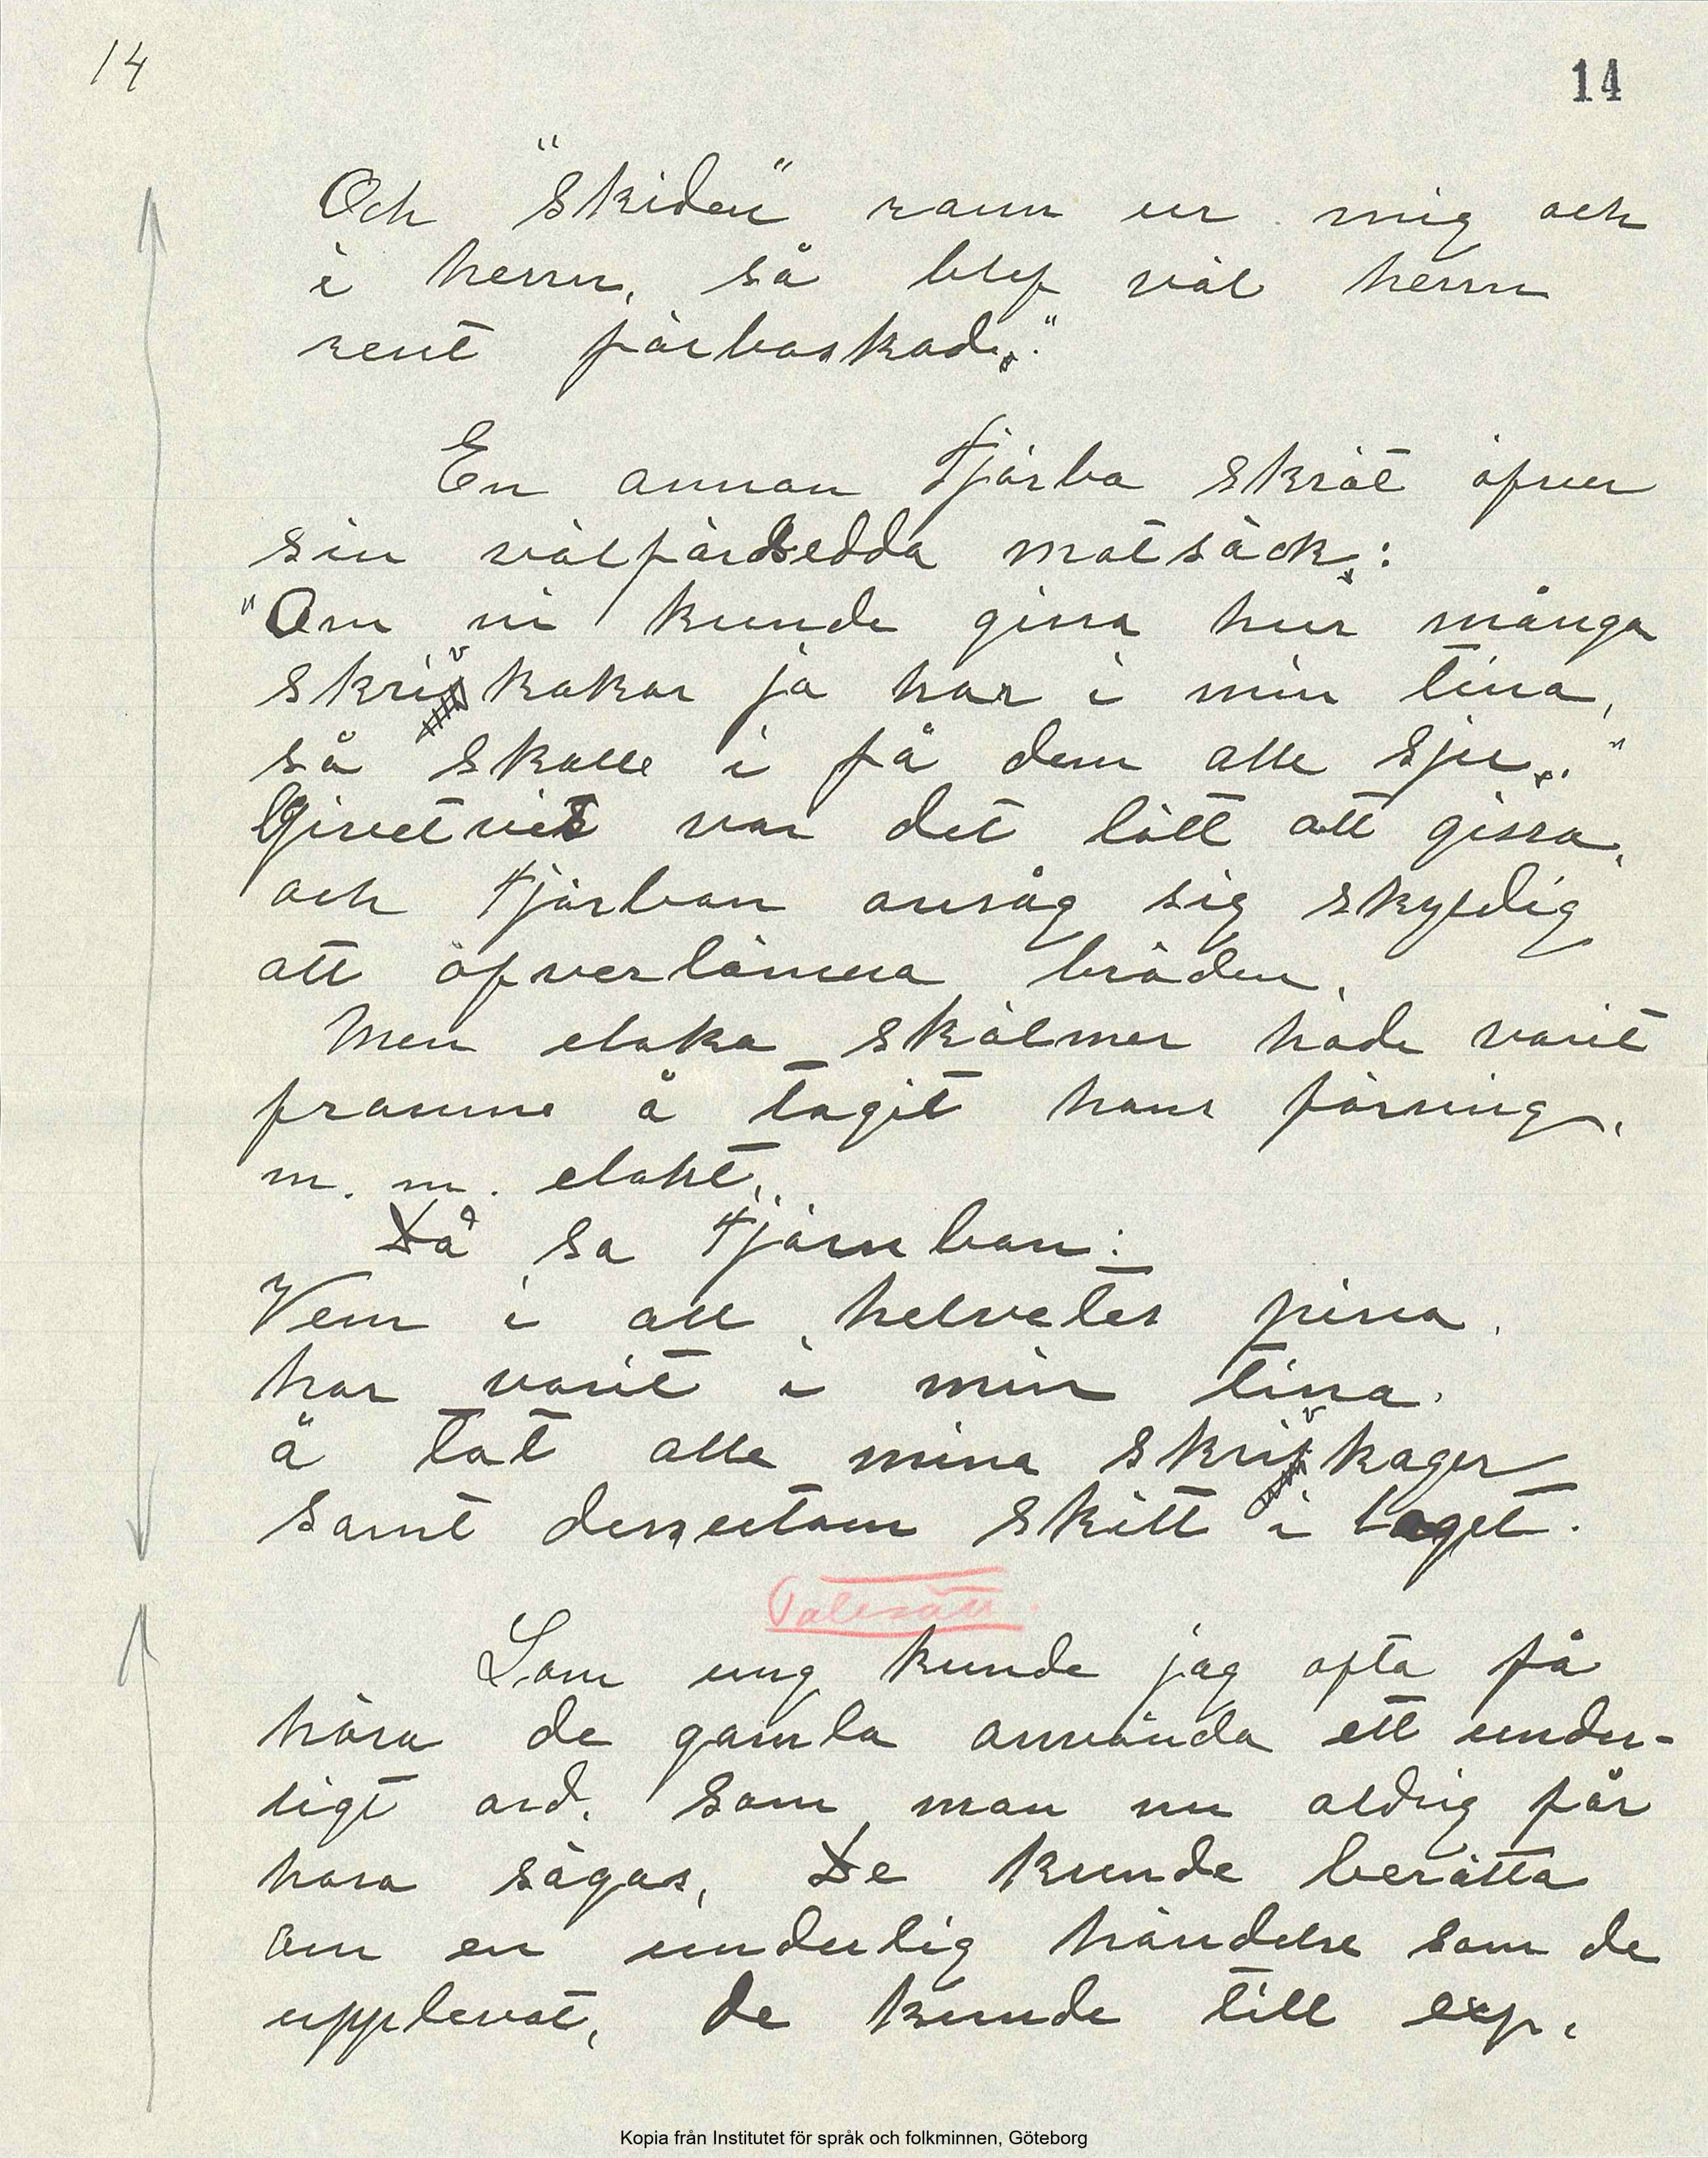 14
14
Och "skiden" rann ur mig och
i herrn, så blef väl herrn
rent förbaskad."
En annan Tjörbo skröt öfver
sin välfärdsedda matsäck:
"Om ni kunde gissa hur många
skrivkakor ja har i min tina,
så skulle i få dem alle sju."
Givetvis var det lätt att gissa,
och Tjörbon ansåg sig skyldig
att öfverlämna bröden.
Men elaka skälmer hade varit
framme å tagit hans förning,
m. m. elakt.
Då sa Tjörnbon:
Vem i all helvetes pina,
har varit i min tina.
å tat alle mina skrivkager
samt dessutom skitt i laget.
Talesätt.
Som ung kunde jag ofta få
höra de gamla använda ett under-
ligt ord. som man nu aldrig får
höra sägas, De kunde berätta
om en underlig händelse som de
upplevat, de kunde till exp.
Kopia från Institutet för språk och folkminnen, Göteborg